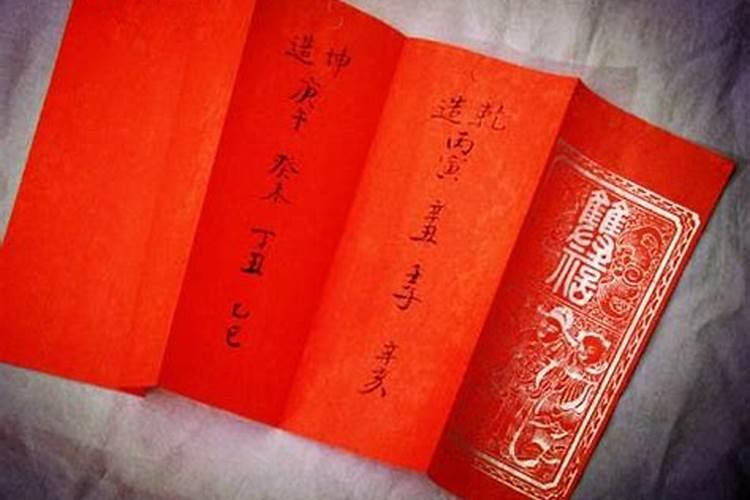 雙福
乾造 丙寅 辛丑 壬子 辛亥
坤造 庚午 癸未 丁丑 乙巳